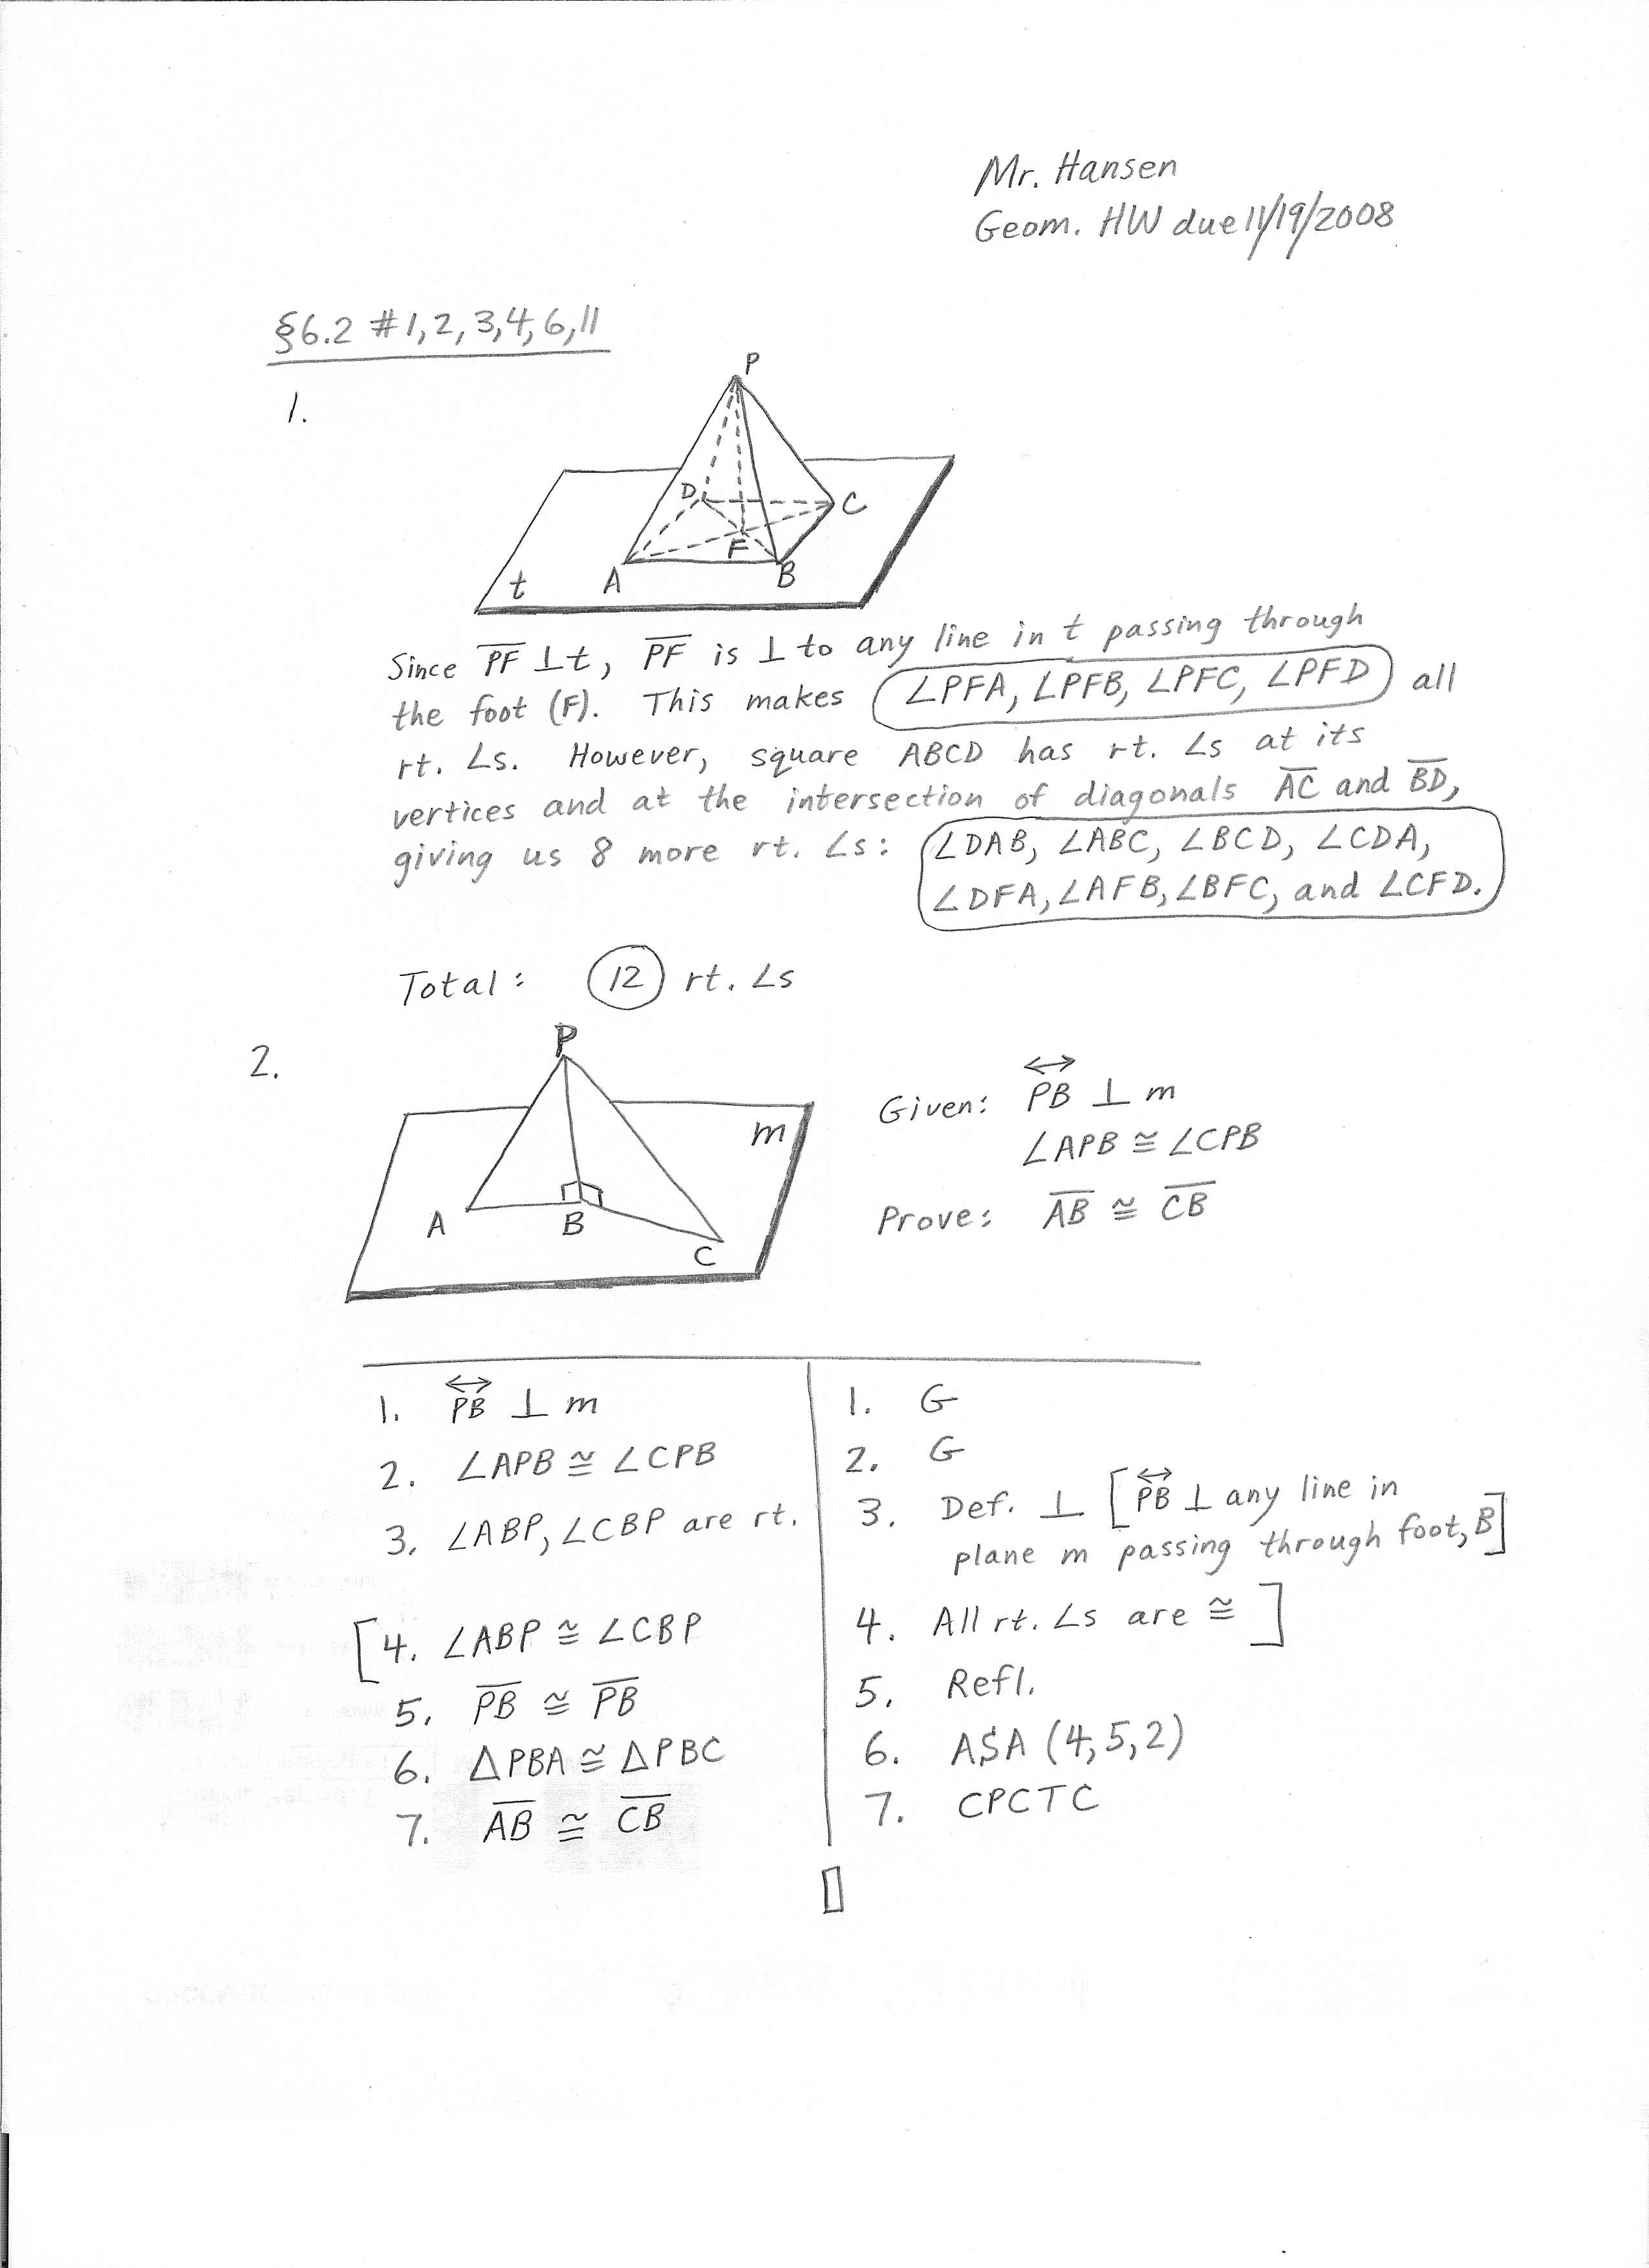 Mr. Hansen
Geom. HW due 11/19/2008
§6.2 #1,2,3,4,6,11
1.
P
D
C
F
A
B
t
Since P̅F̅ ⊥ t, P̅F̅ is ⊥ to any line in t passing through
the foot (F). This makes ∠PFA, ∠PFB, ∠PFC, ∠PFD all
rt. ∠s. However, square ABCD has rt. ∠s at its
vertices and at the intersection of diagonals A̅C̅ and B̅D̅,
giving us 8 more rt. ∠s: ∠DAB, ∠ABC, ∠BCD, ∠CDA,
∠DFA, ∠AFB, ∠BFC, and ∠CFD.
Total: 12 rt. ∠s
2.
P
m
A
B
C
Given: ↔PB ⊥ m
∠APB ≅ ∠CPB
Prove: A̅B̅ ≅ C̅B̅
1. ↔PB ⊥ m 1. G
2. ∠APB ≅ ∠CPB 2. G
3. ∠ABP, ∠CBP are rt. 3. Def. ⊥ [↔PB ⊥ any line in
plane m passing through foot, B]
[4. ∠ABP ≅ ∠CBP 4. All rt. ∠s are ≅ ]
5. P̅B̅ ≅ P̅B̅ 5. Refl.
6. △PBA ≅ △PBC 6. ASA (4,5,2)
7. A̅B̅ ≅ C̅B̅ 7. CPCTC